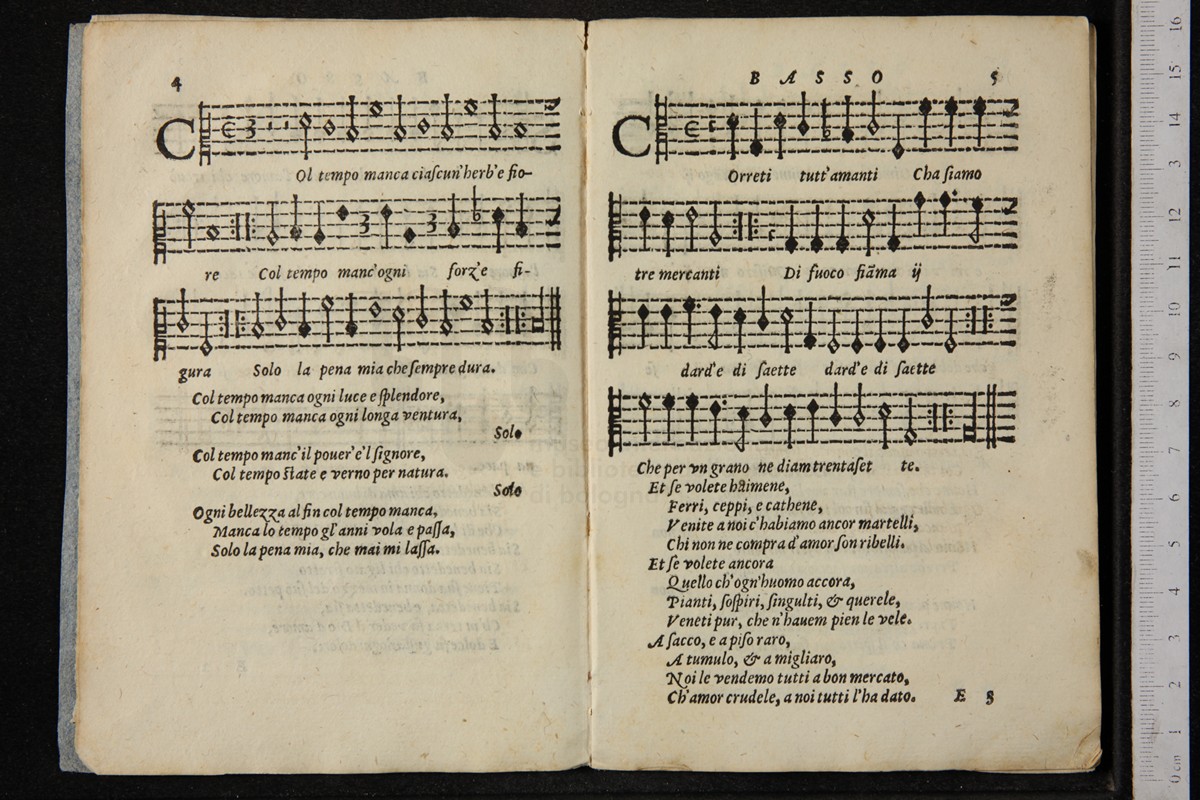 4
C
Ol tempo manca ciaſcun'herb'e fio-
re Col tempo manc'ogni forz'e fi-
gura Solo la pena mia che ſempre dura.
Col tempo manca ogni luce e ſplendore,
Col tempo manca ogni longa ventura,
Solo
Col tempo manc'il pouer'e'l ſignore,
Col tempo ſtate e verno per natura.
Solo
Ogni bellezza al fin col tempo manca,
Manca lo tempo gl'anni vola e paſſa,
Solo la pena mia, che mai mi laſſa.
BASSO 5
C
Orreti tutt'amanti Cha ſiamo
tre mercanti Di fuoco fiãma ij
dard'e di ſaette dard'e di ſaette
Che per vn grano ne diam trentaſet te.
Et ſe volete hãimene,
Ferri, ceppi, e cathene,
Venite a noi c'habiamo ancor martelli,
Chi non ne compra d'amor ſon ribelli.
Et ſe volete ancora
Quello ch'ogn'huomo accora,
Pianti, ſoſpiri, ſingulti, & querele,
Veneti pur, che n'hauem pien le vele.
A ſacco, e a piſo raro,
A tumulo, & a migliaro,
Noi le vendemo tutti a bon mercato,
Ch'amor crudele, a noi tutti l'ha dato. E 3
0 cm 1 2 3 4 5 6 7 8 9 10 11 12 13 14 15 16